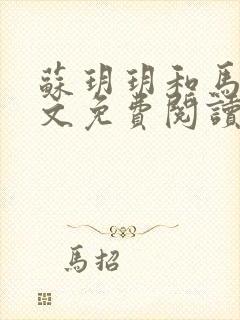 蘇玥玥和馬
文免費閱讀
馬招